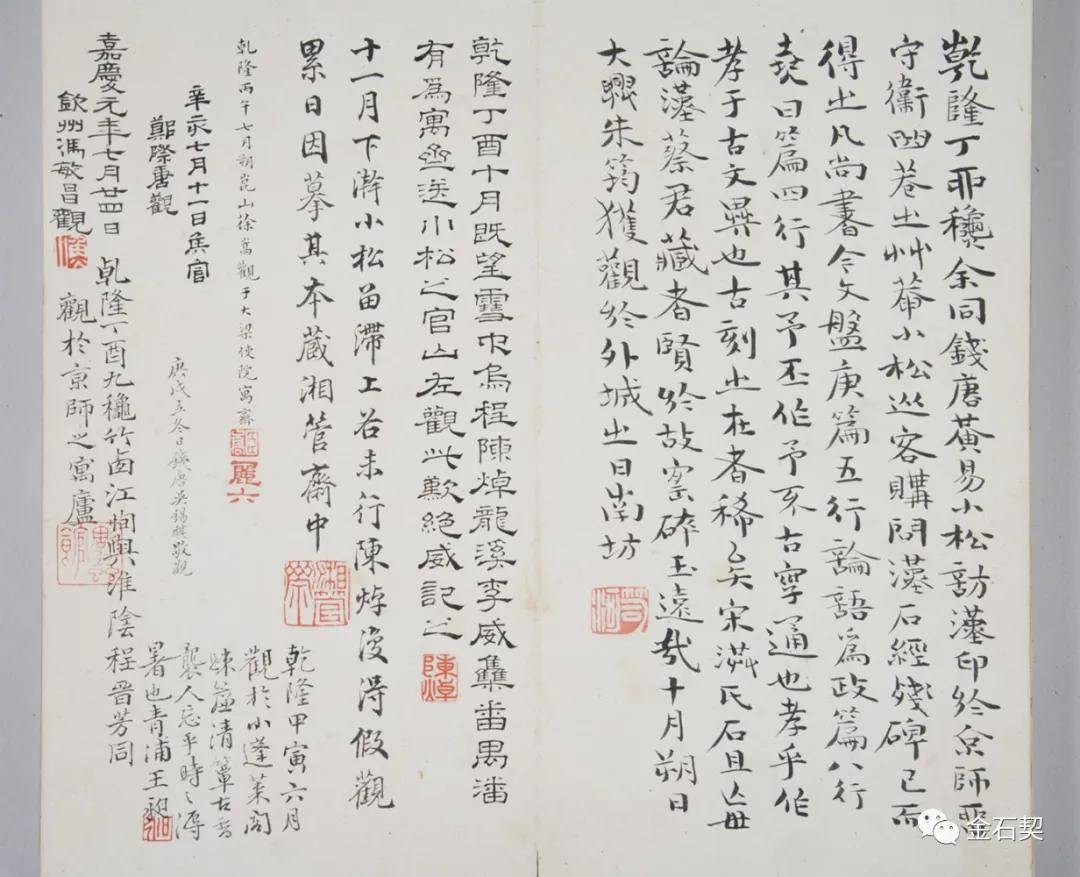 乾隆丁丣穐余同錢唐黃易小松訪漢印於京師
守衞巷之艸菴小松從客購問漢石經殘碑已而
得之凡尚書今文盤庚篇五行論語爲政篇八行
堯曰篇四行其予丕作予不古字通也孝乎作
孝于古文異也古刻之在者稀矣宋洪氏石且亾毋
論漢蔡君藏者賢於故家碎玉遠哉十月朔日
大興朱筠獲觀於外城之日南坊
乾隆丁酉十月既望雪中烏程陳焯龍溪李威集番禺潘
有爲寓齋送小松之官山左觀此歎絕威記之
陳焯
十一月下澣小松留滯未行陳焯復得假觀
累日因摹其本藏湘管齋中
乾隆丙午七月朔崑山徐嵩觀于大梁使院寓齋
辛亥七月十一日侯官
鄭際唐觀
庚戌立冬日錢唐吳錫麒敬觀
嘉慶元年七月廿四日
欽州馮敏昌觀
乾隆丁酉九穐竹鹵江恂與淮陰程晉芳同
觀於京師之寓廬
乾隆甲寅六月
觀於小蓬萊閣
疎簾清簟古香
襲人忘乎時之溽
暑也青浦王昶
金石契